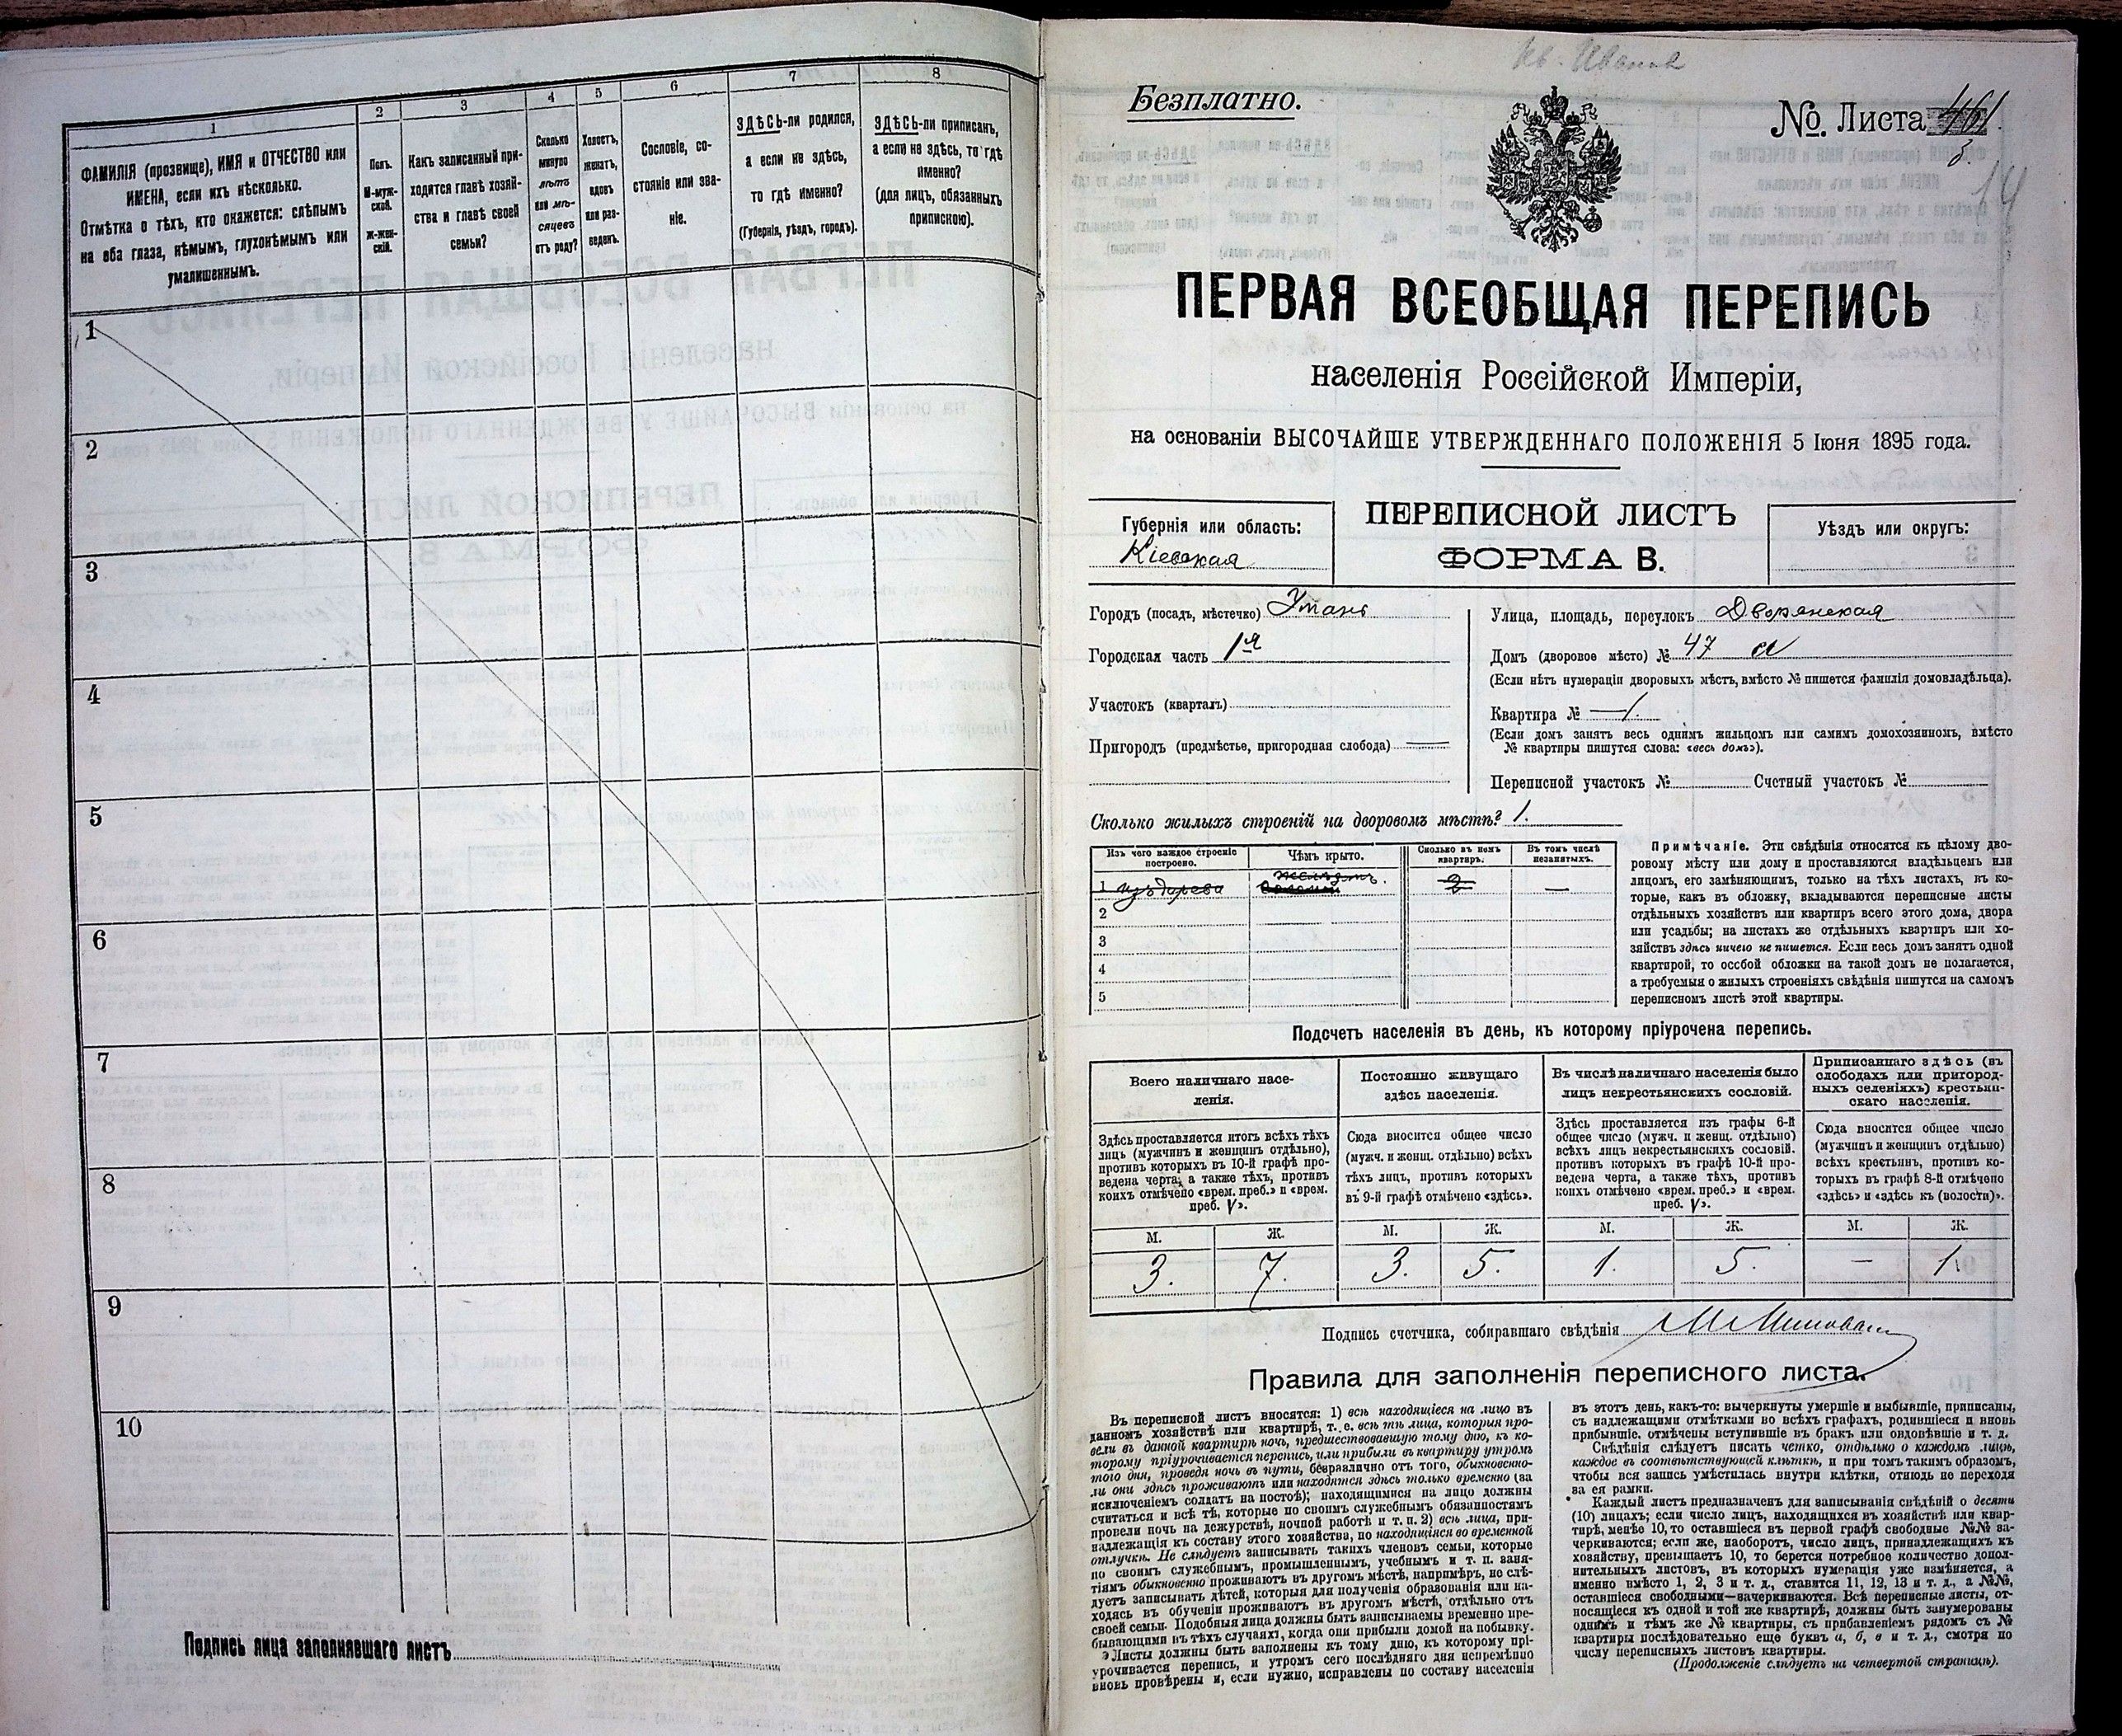 1
ФАМИЛІЯ (прозвище), ИМЯ и ОТЧЕСТВО или
ИМЕНА, если ихъ нѣсколько.
Отмѣтка о тѣхъ, кто окажется: слѣпымъ
на оба глаза, нѣмымъ, глухонѣмымъ или
умалишеннымъ.
2
Полъ.
М-муж-
ской.
Ж-жен-
скій.
3
Какъ записанный при-
ходится главѣ хозяй-
ства и главѣ своей
семьи?
4
Сколько
минуло
лѣтъ
или мѣ-
сяцевъ
отъ роду?
5
Холостъ,
женатъ,
вдовъ
или раз-
веденъ.
6
Сословіе, со-
стояніе или зва-
ніе.
7
ЗДѢСЬ-ли родился,
а если не здѣсь,
то гдѣ именно?
(Губернія, уѣздъ, городъ).
8
ЗДѢСЬ-ли приписанъ,
а если не здѣсь, то гдѣ
именно?
(для лицъ, обязанныхъ
припискою).
1
2
3
4
5
6
7
8
9
10
Подпись лица заполнявшаго листъ
Безплатно.
№. Листа
ПЕРВАЯ ВСЕОБЩАЯ ПЕРЕПИСЬ
населенія Россійской Имперіи,
на основаніи ВЫСОЧАЙШЕ УТВЕРЖДЕННАГО ПОЛОЖЕНІЯ 5 Іюня 1895 года.
Губернія или область:
Кіевская
ПЕРЕПИСНОЙ ЛИСТЪ
ФОРМА В.
Уѣздъ или округъ:
Городъ (посадъ, мѣстечко) Умань
Городская часть 1я
Участокъ (кварталъ)
Пригородъ (предмѣстье, пригородная слобода)
Улица, площадь, переулокъ Дворянская
Домъ (дворовое мѣсто) № 47
(Если нѣтъ нумераціи дворовыхъ мѣстъ, вмѣсто № пишется фамилія домовладѣльца).
Квартира № 1.
(Если домъ занятъ весь однимъ жильцомъ или самимъ домохозяиномъ, вмѣсто
№ квартиры пишутся слова: «весь домъ»).
Переписной участокъ № Счетный участокъ №
Сколько жилыхъ строеній на дворовомъ мѣстѣ? 1.
Изъ чего каждое строеніе
построено.
Чѣмъ крыто.
Сколько въ немъ
квартиръ.
Въ томъ числѣ
незанятыхъ.
1 изъ дерева желѣзомъ. 2 —
2
3
4
5
Примѣчаніе. Эти свѣдѣнія относятся къ цѣлому дво-
ровому мѣсту или дому и проставляются владѣльцемъ или
лицомъ, его замѣняющимъ, только на тѣхъ листахъ, въ ко-
торые, какъ въ обложку, вкладываются переписные листы
отдѣльныхъ хозяйствъ или квартиръ всего этого дома, двора
или усадьбы; на листахъ же отдѣльныхъ квартиръ или хо-
зяйствъ здѣсь ничего не пишется. Если весь домъ занятъ одной
квартирой, то особой обложки на такой домъ не полагается,
а требуемыя о жилыхъ строеніяхъ свѣдѣнія пишутся на самомъ
переписномъ листѣ этой квартиры.
Подсчетъ населенія въ день, къ которому пріурочена перепись.
Всего наличнаго насе-
ленія.
Здѣсь проставляется итогъ всѣхъ тѣхъ
лицъ (мужчинъ и женщинъ отдѣльно),
противъ которыхъ въ 10-й графѣ про-
ведена черта, а также тѣхъ, противъ
коихъ отмѣчено «врем. преб.» и «врем.
преб. V».
Постоянно живущаго
здѣсь населенія.
Сюда вносится общее число
(мужч. и женщ. отдѣльно) всѣхъ
тѣхъ лицъ, противъ которыхъ
въ 9-й графѣ отмѣчено «здѣсь».
Въ числѣ наличнаго населенія было
лицъ некрестьянскихъ сословій.
Здѣсь проставляется изъ графы 6-й
общее число (мужч. и женщ. отдѣльно)
всѣхъ лицъ некрестьянскихъ сословій.
противъ которыхъ въ графѣ 10-й про-
ведена черта, а также тѣхъ, противъ
коихъ отмѣчено «врем. преб.» и «врем.
преб. V».
Приписаннаго здѣсь (въ
слободахъ или пригород-
ныхъ селеніяхъ) крестьян-
скаго населенія.
Сюда вносится общее число
(мужчинъ и женщинъ отдѣльно)
всѣхъ крестьянъ, противъ ко-
торыхъ въ графѣ 8-й отмѣчено
«здѣсь» и «здѣсь къ (волости)».
М. Ж. М. Ж. М. Ж. М. Ж.
3. 7. 3. 5. 1. 5. — 1.
Подпись счетчика, собиравшаго свѣдѣнія
Правила для заполненія переписного листа.
Въ переписной листъ вносятся: 1) всѣ находящіеся на лицо въ
данномъ хозяйствѣ или квартирѣ, т. е. всѣ тѣ лица, которыя про-
вели въ данной квартирѣ ночь, предшествовавшую тому дню, къ ко-
торому пріурочивается перепись, или прибыли въ квартиру утромъ
того дня, проведя ночь въ пути, безразлично отъ того, обыкновенно-
ли они здѣсь проживаютъ или находятся здѣсь только временно (за
исключеніемъ солдатъ на постоѣ); находящимися на лицо должны
считаться и всѣ тѣ, которые по своимъ служебнымъ обязанностямъ
провели ночь на дежурствѣ, ночной работѣ и т. п. 2) всѣ лица, при-
надлежащія къ составу этого хозяйства, но находящіяся во временной
отлучкѣ. Не слѣдуетъ записывать такихъ членовъ семьи, которые
по своимъ служебнымъ, промышленнымъ, учебнымъ и т. п. заня-
тіямъ обыкновенно проживаютъ въ другомъ мѣстѣ, напримѣръ, не слѣ-
дуетъ записывать дѣтей, которыя для полученія образованія или на-
ходясь въ обученіи проживаютъ въ другомъ мѣстѣ, отдѣльно отъ
своей семьи. Подобныя лица должны быть записываемы временно пре-
бывающими въ тѣхъ случаяхъ, когда они прибыли домой на побывку.
Листы должны быть заполнены къ тому дню, къ которому прі-
урочивается перепись, и утромъ сего послѣдняго дня непремѣнно
вновь провѣрены и, если нужно, исправлены по составу населенія
въ этотъ день, какъ-то: вычеркнуты умершіе и выбывшіе, приписаны,
съ надлежащими отмѣтками во всѣхъ графахъ, родившіеся и вновь
прибывшіе, отмѣчены вступившіе въ бракъ или овдовѣвшіе и т. д.
Свѣдѣнія слѣдуетъ писать четко, отдѣльно о каждомъ лицѣ,
каждое въ соотвѣтствующей клѣткѣ, и при томъ такимъ образомъ,
чтобы вся запись умѣстилась внутри клѣтки, отнюдь не переходя
за ея рамки.
Каждый листъ предназначенъ для записыванія свѣдѣній о десяти
(10) лицахъ; если число лицъ, находящихся въ хозяйствѣ или квар-
тирѣ, менѣе 10, то оставшіеся въ первой графѣ свободные №№ за-
черкиваются; если же, наоборотъ, число лицъ, принадлежащихъ къ
хозяйству, превышаетъ 10, то берется потребное количество допол-
нительныхъ листовъ, въ которыхъ нумерація уже измѣняется, а
именно вмѣсто 1, 2, 3 и т. д., ставятся 11, 12, 13 и т. д., а №№,
оставшіеся свободными—зачеркиваются. Всѣ переписные листы, от-
носящіеся къ одной и той же квартирѣ, должны быть занумерованы
однимъ и тѣмъ же № квартиры, съ прибавленіемъ рядомъ съ №
квартиры послѣдовательно еще буквъ а, б, в и т. д., смотря по
числу переписныхъ листовъ квартиры.
(Продолженіе слѣдуетъ на четвертой страницѣ).